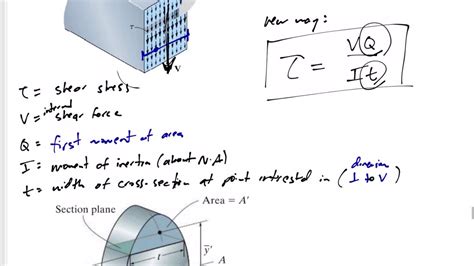 new way:
τ = VQ / It
τ
V
τ = shear stress
V = internal shear force
Q = first moment of area
I = moment of inertia (about N.A)
t = width of cross-section at point intrested in (dimension ⊥ to V)
Section plane
Area = A'
t
ȳ'
A